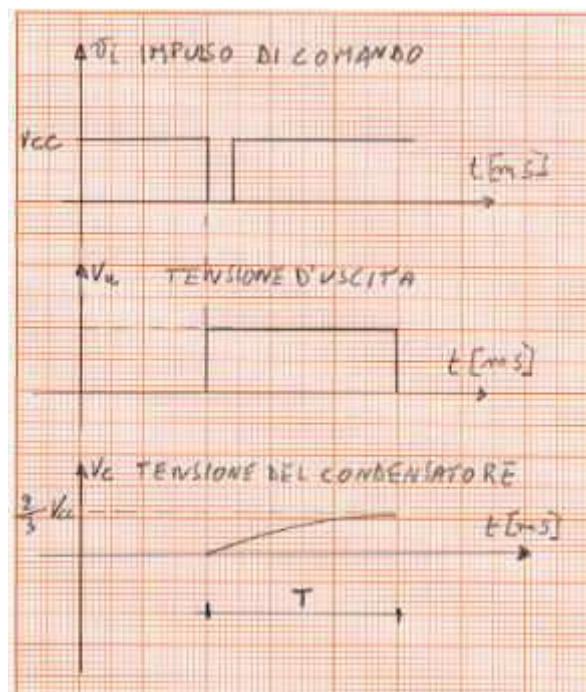 Vi IMPULSO DI COMANDO
Vcc
t[ms]
Vu TENSIONE D'USCITA
t[ms]
Vc TENSIONE DEL CONDENSATORE
2/3 Vcc
t[ms]
T